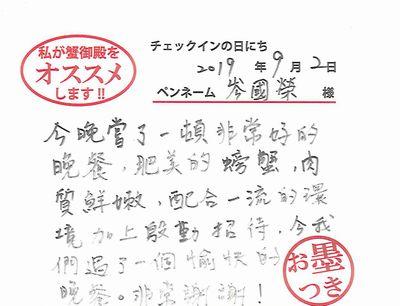 私が蟹御殿を
オススメ
します!!
チェックインの日にち
2019 年 9 月 2 日
ペンネーム 岑國榮 様
今晚嘗了一頓非常好的
晚餐,肥美的螃蟹,肉
質鮮嫩,配合一流的環
境加上殷勤招待,令我
們過了一個愉快的
晚餐。非常謝謝!
お墨
つき